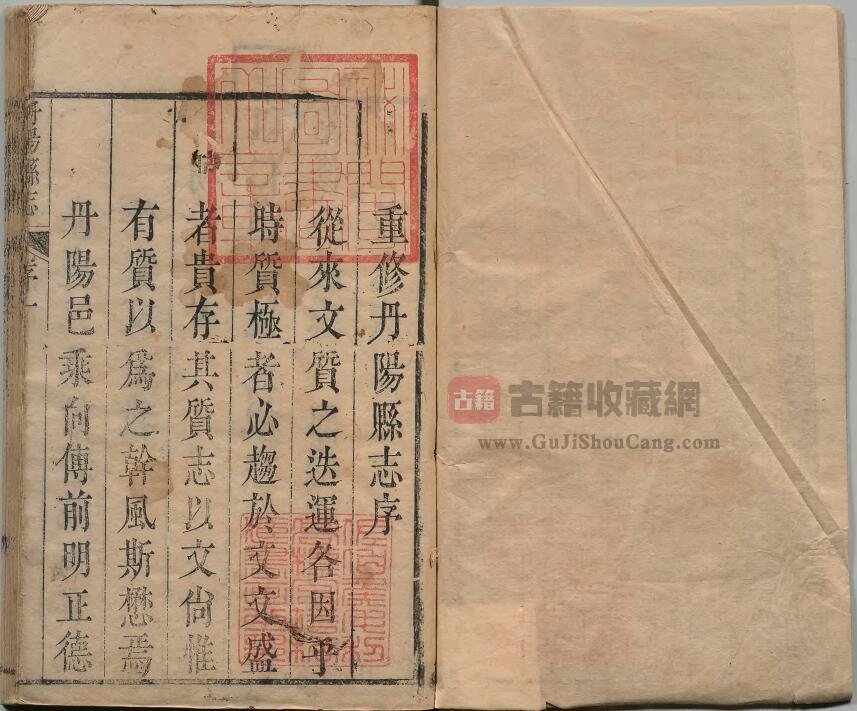 重修丹陽縣志序
從來文質之迭運各因乎
時質極者必趨於文文盛
者貴存其質志以文尙惟
有質以爲之幹風斯懋焉
丹陽邑乘向傳前明正德
丹陽縣志
序一
古籍
古籍收藏網
www.GuJiShouCang.com